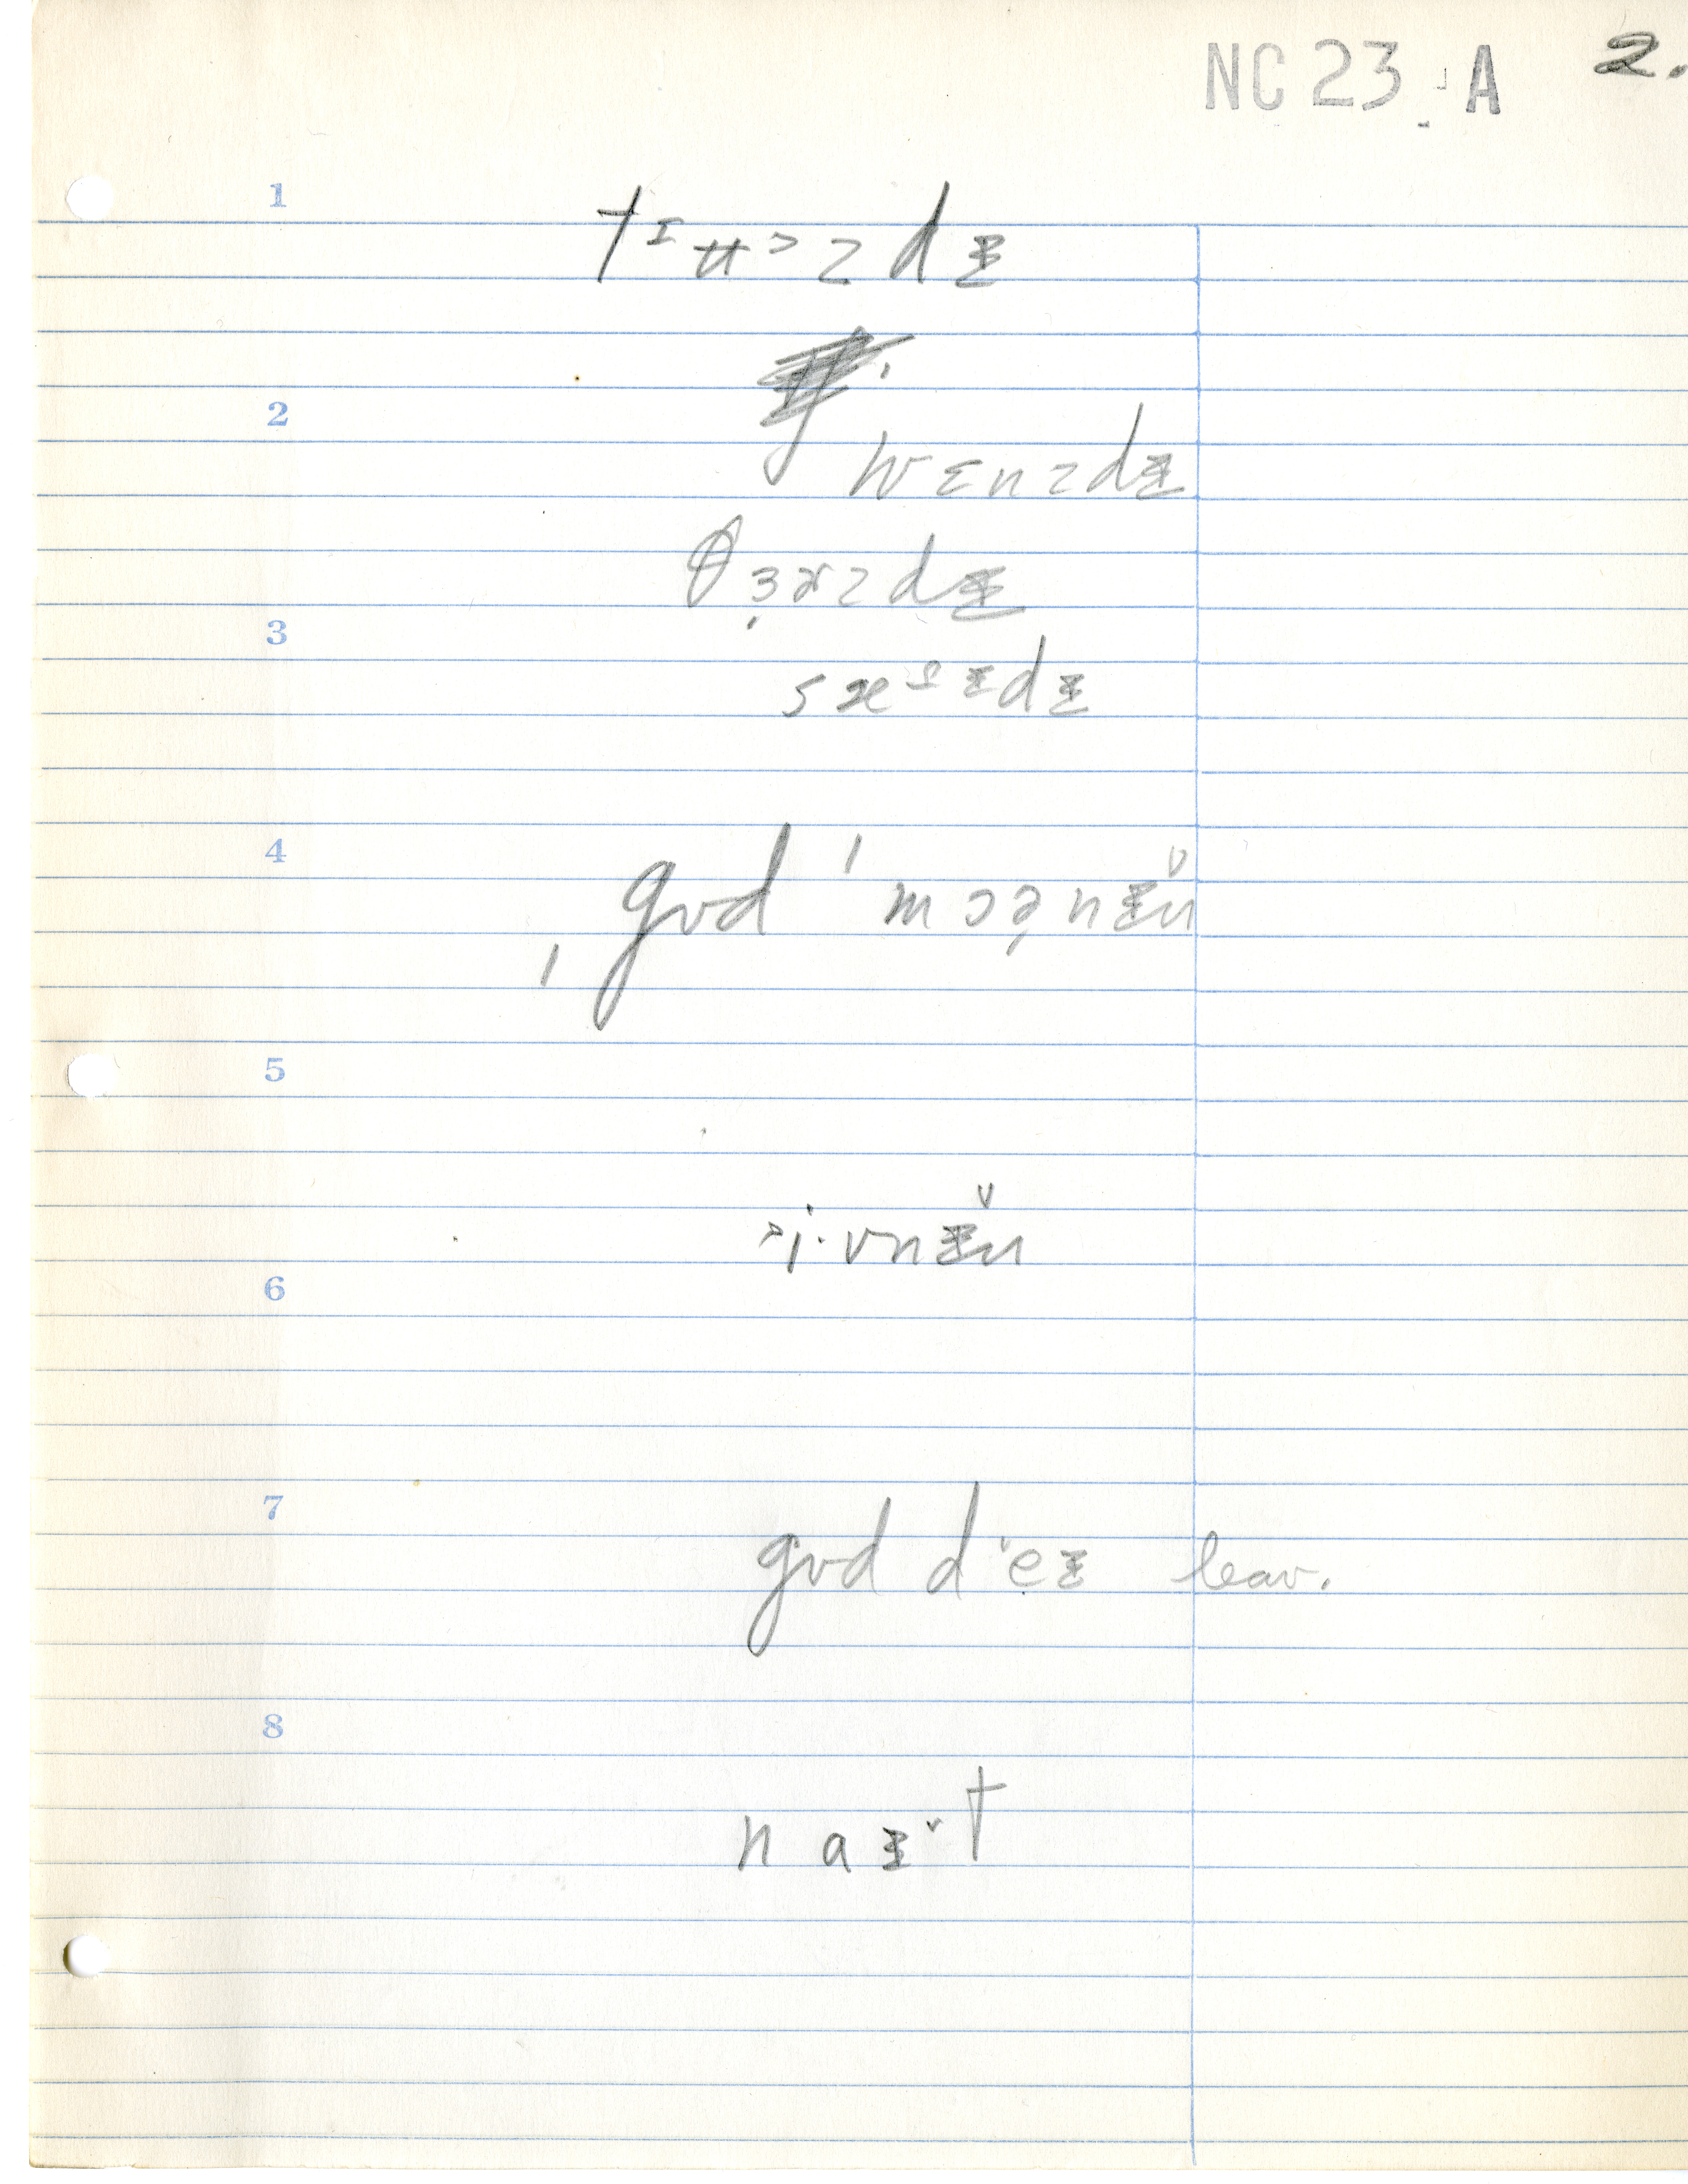 NC 23 A 2.
1
tɪʉ˃zdɪ̵
2
wɛnzdɪ̵
θɜ˞zdɪ̵
3
sæᵊɪ̵dɪ̵
4
ˌgʊd ˈmɔə̦nɪ̵n̆
5
i·vnɪ̵n̆
6
7
gʊd d˅eɪ̵ leav.
8
naɪ̵˅t